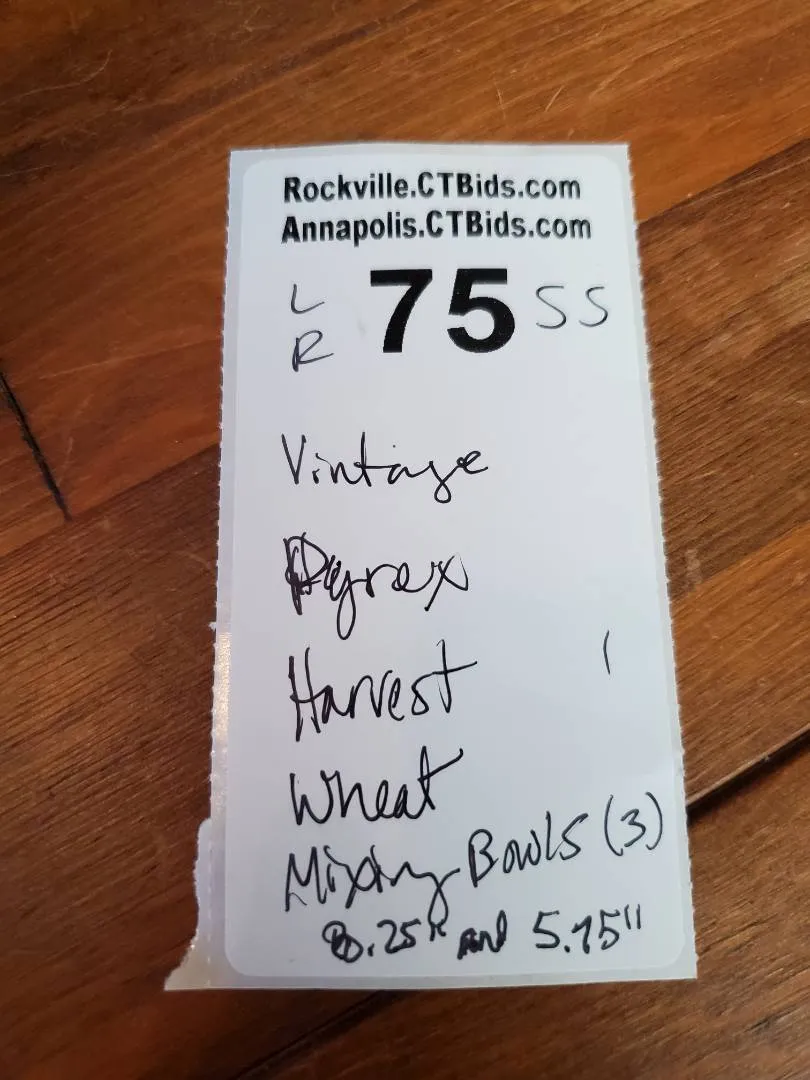 Rockville.CTBids.com
Annapolis.CTBids.com
L 75 SS
R
Vintage
Pyrex
Harvest
Wheat
Mixing Bowls (3)
8.25" and 5.75"